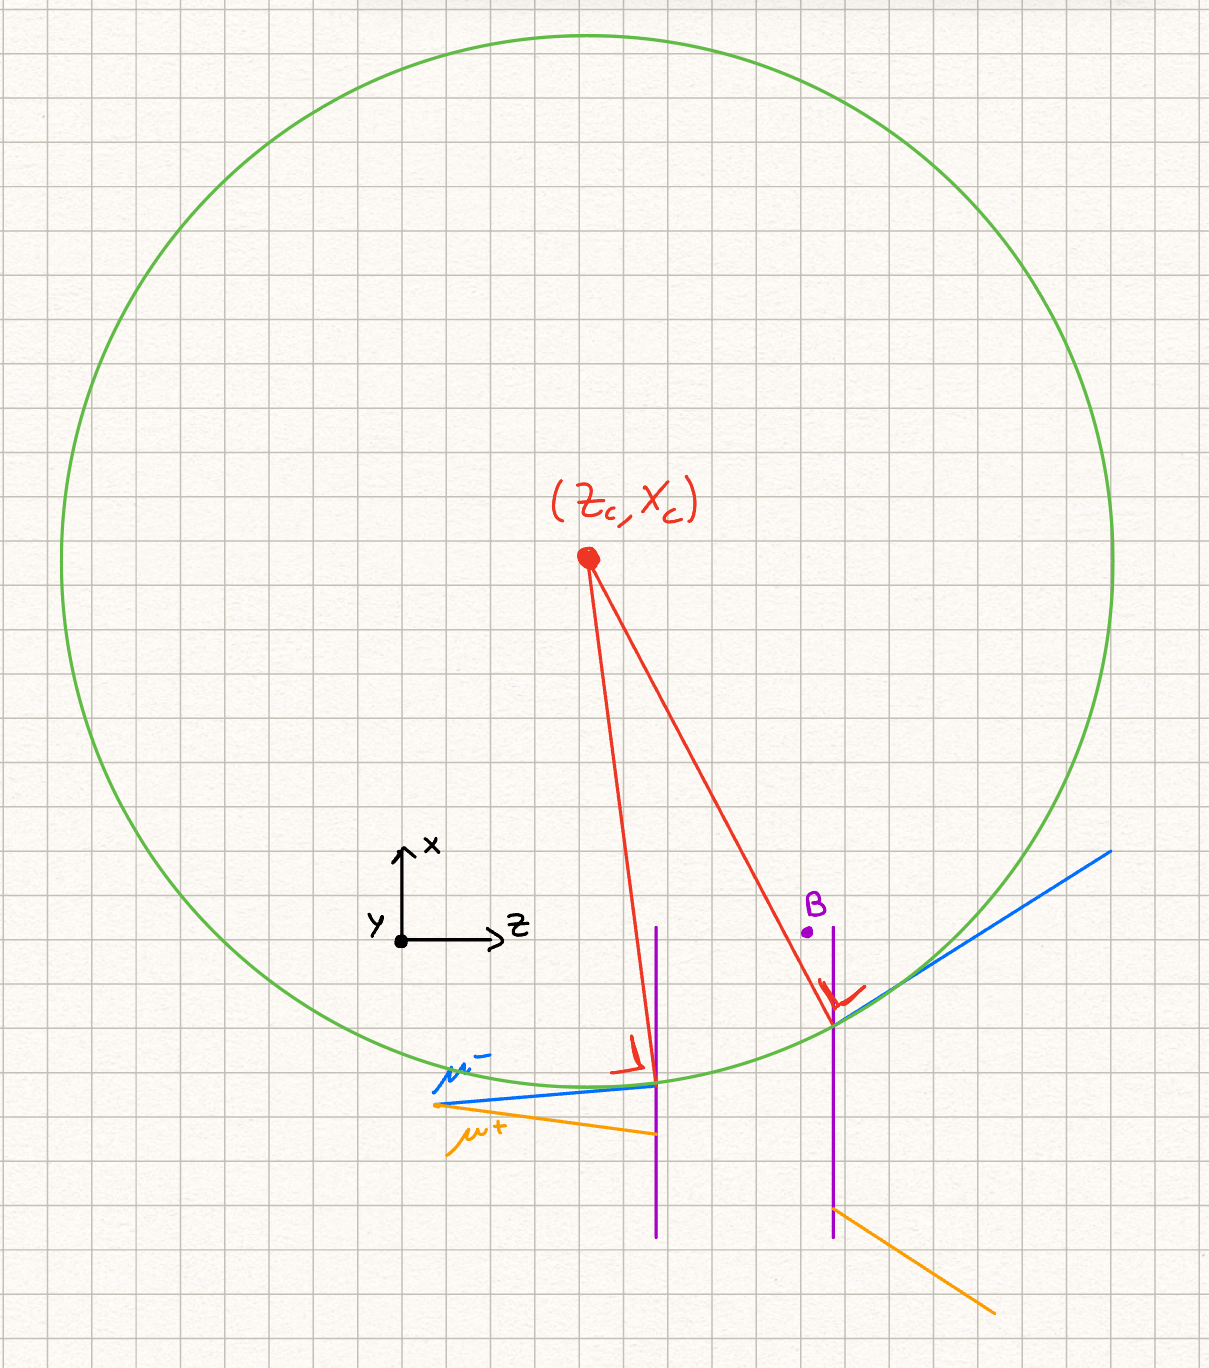 (Zc, Xc)
x
y
z
B
μ⁻
μ⁺